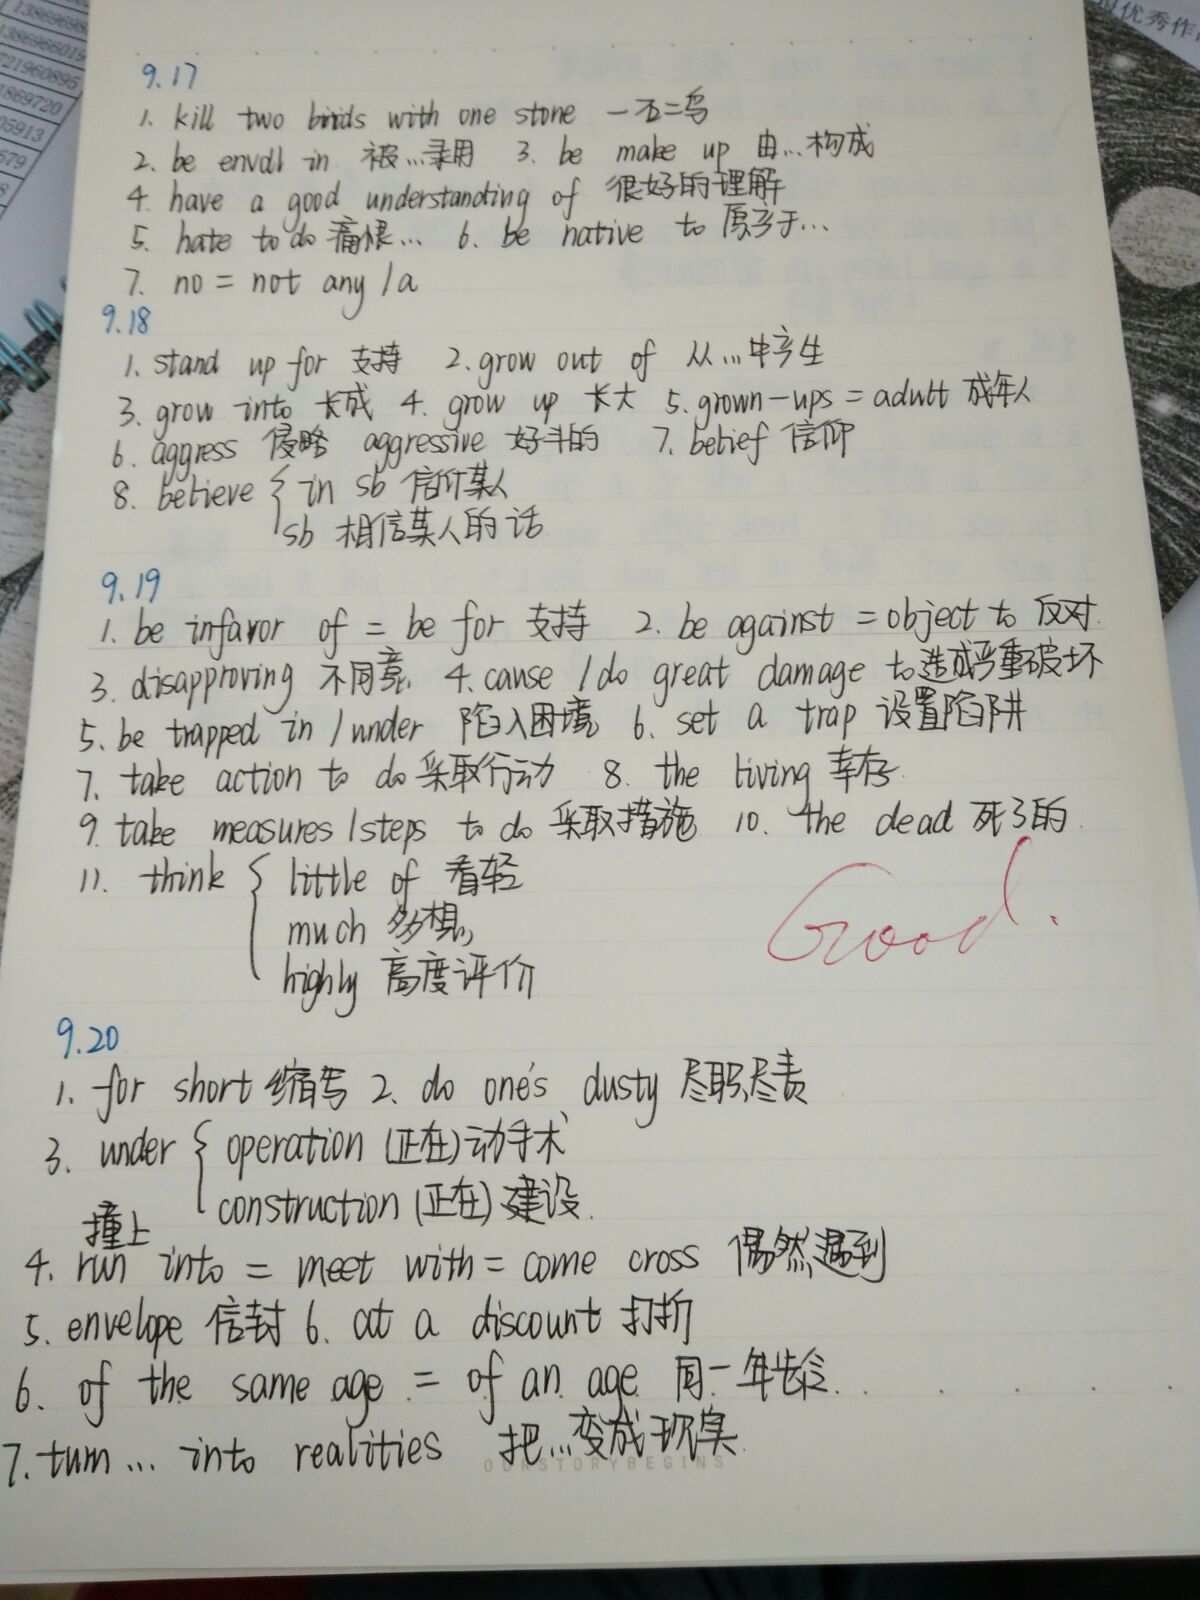 13869660195
721960895
1869720
05913
优秀作
9.17
1. kill two birds with one stone 一石二鸟
2. be enroll in 被...录用 3. be make up 由...构成
4. have a good understanding of 很好的理解
5. hate to do 痛恨... 6. be native to 原产于...
7. no = not any / a
9.18
1. stand up for 支持 2. grow out of 从...中产生
3. grow into 长成 4. grow up 长大 5. grown-ups = adult 成年人
6. aggress 侵略 aggressive 好斗的 7. belief 信仰
8. believe { in sb 信仰某人
sb 相信某人的话
9.19
1. be infavor of = be for 支持 2. be against = object to 反对.
3. disapproving 不同意 4. cause / do great damage to 造成严重破坏
5. be trapped in / under 陷入困境 6. set a trap 设置陷阱
7. take action to do 采取行动 8. the living 幸存
9. take measures / steps to do 采取措施 10. the dead 死了的.
11. think { little of 看轻
much 多想
highly 高度评价
Good.
9.20
1. for short 缩写 2. do one's dusty 尽职尽责
3. under { operation (正在)动手术
construction (正在)建设.
撞上
4. run into = meet with = come cross 偶然遇到
5. envelope 信封 6. at a discount 打折
6. of the same age = of an age 同一年龄.
7. turn ... into realities 把...变成现实
OURSTORYBEGINS